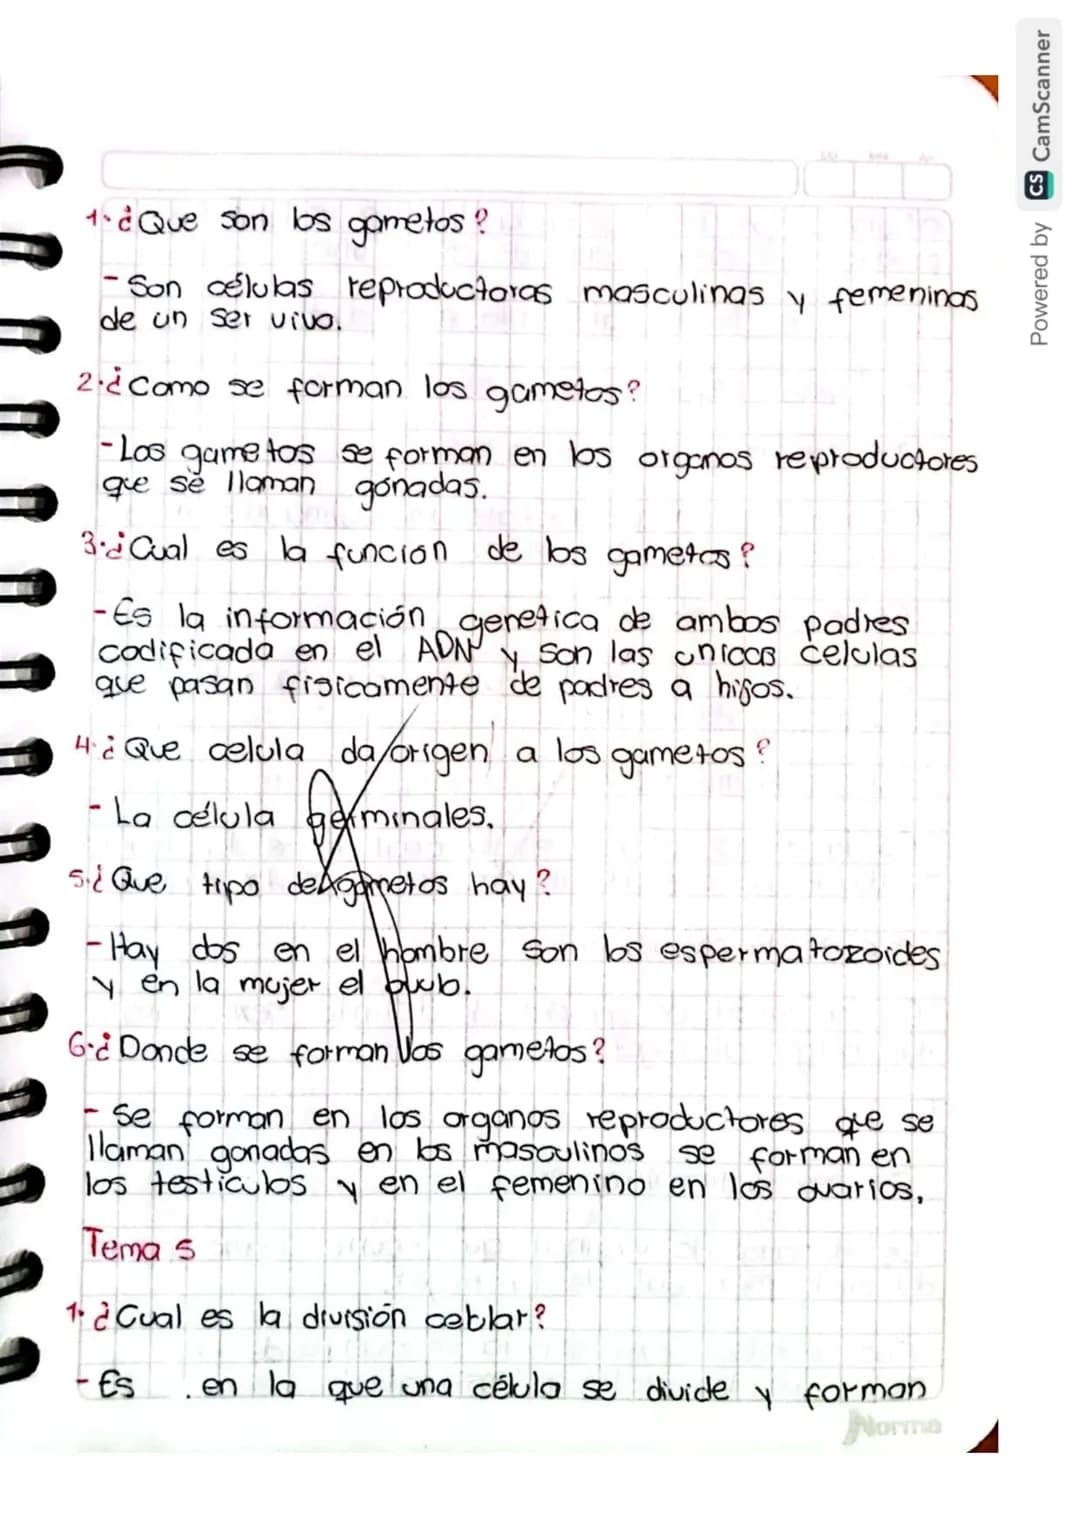 1.¿Que son los gametos?
- Son células reproductoras masculinas y femeninas
de un ser vivo.
2.¿Como se forman los gametos?
- Los gametos se forman en los organos reproductores
que se llaman gónadas.
3.¿Cual es la función de los gametos?
- Es la información genetica de ambos padres
codificada en el ADN y son las unicas celulas
que pasan fisicamente de padres a hijos.
4.¿Que celula da origen a los gametos?
- La célula germinales.
5.¿Que tipo de gametos hay?
- Hay dos en el hombre son los espermatozoides
y en la mujer el
6.¿Donde se forman los gametos?
- Se forman en los organos reproductores que se
llaman gonadas en los masculinos se forman en
los testiculos y en el femenino en los ovarios.
Tema 5
1.¿Cual es la división celular?
- Es . en la que una célula se divide y forman
Norma
Powered by CS CamScanner